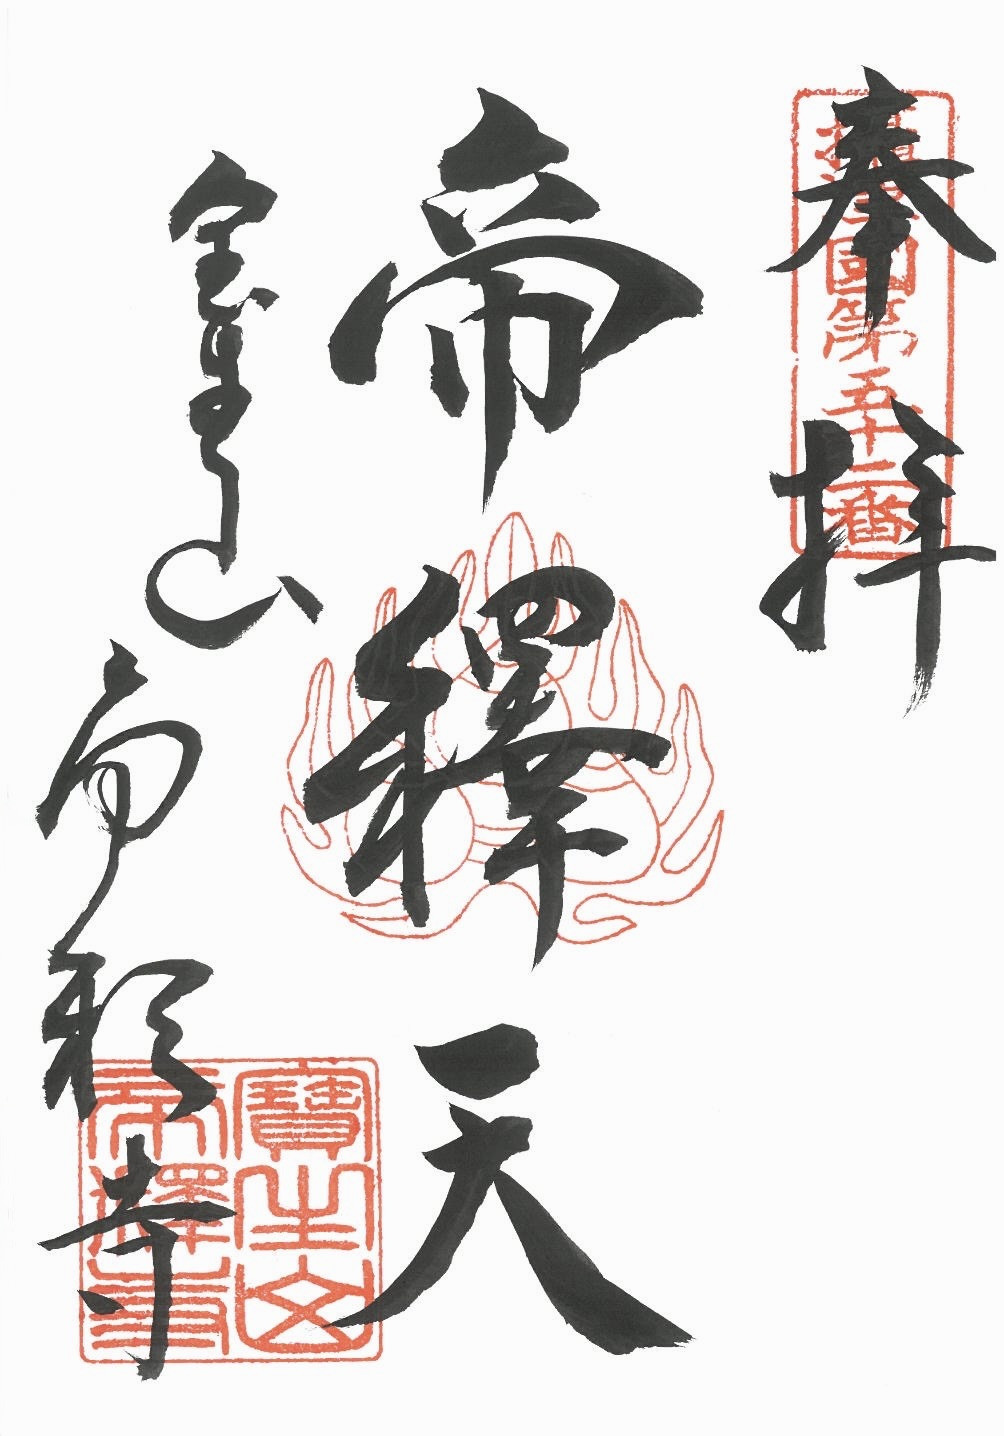 奉拝
摂津國第五十二番
帝釋天
宝生山
帝釈寺
寳生山
帝釋寺